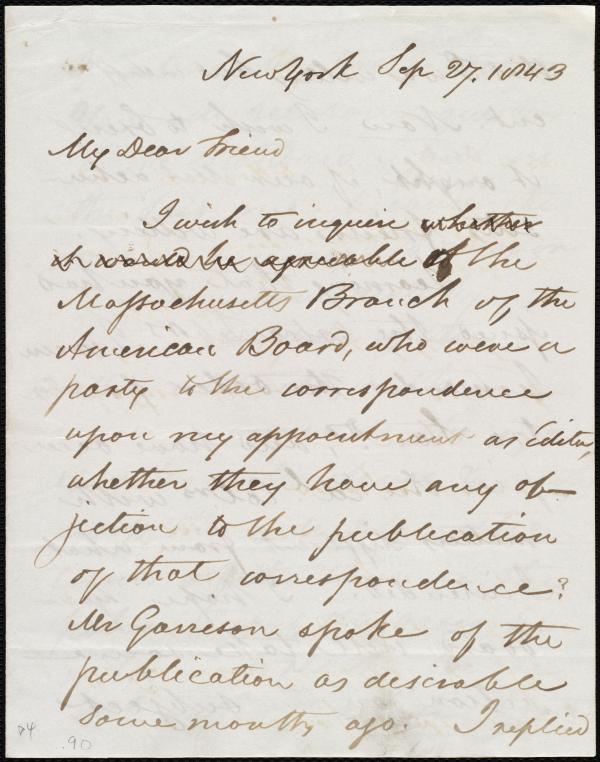 New York Sep 27. 1843
My Dear Friend
I wish to inquire whether
it would be agreeable of the
Massachusetts Branch of the
American Board, who were a
party to the correspondence
upon my appointment as Editor,
whether they have any ob-
jection to the publication
of that correspondence?
Mr Garreson spoke of the
publication as desirable
some months ago. I replied
.90